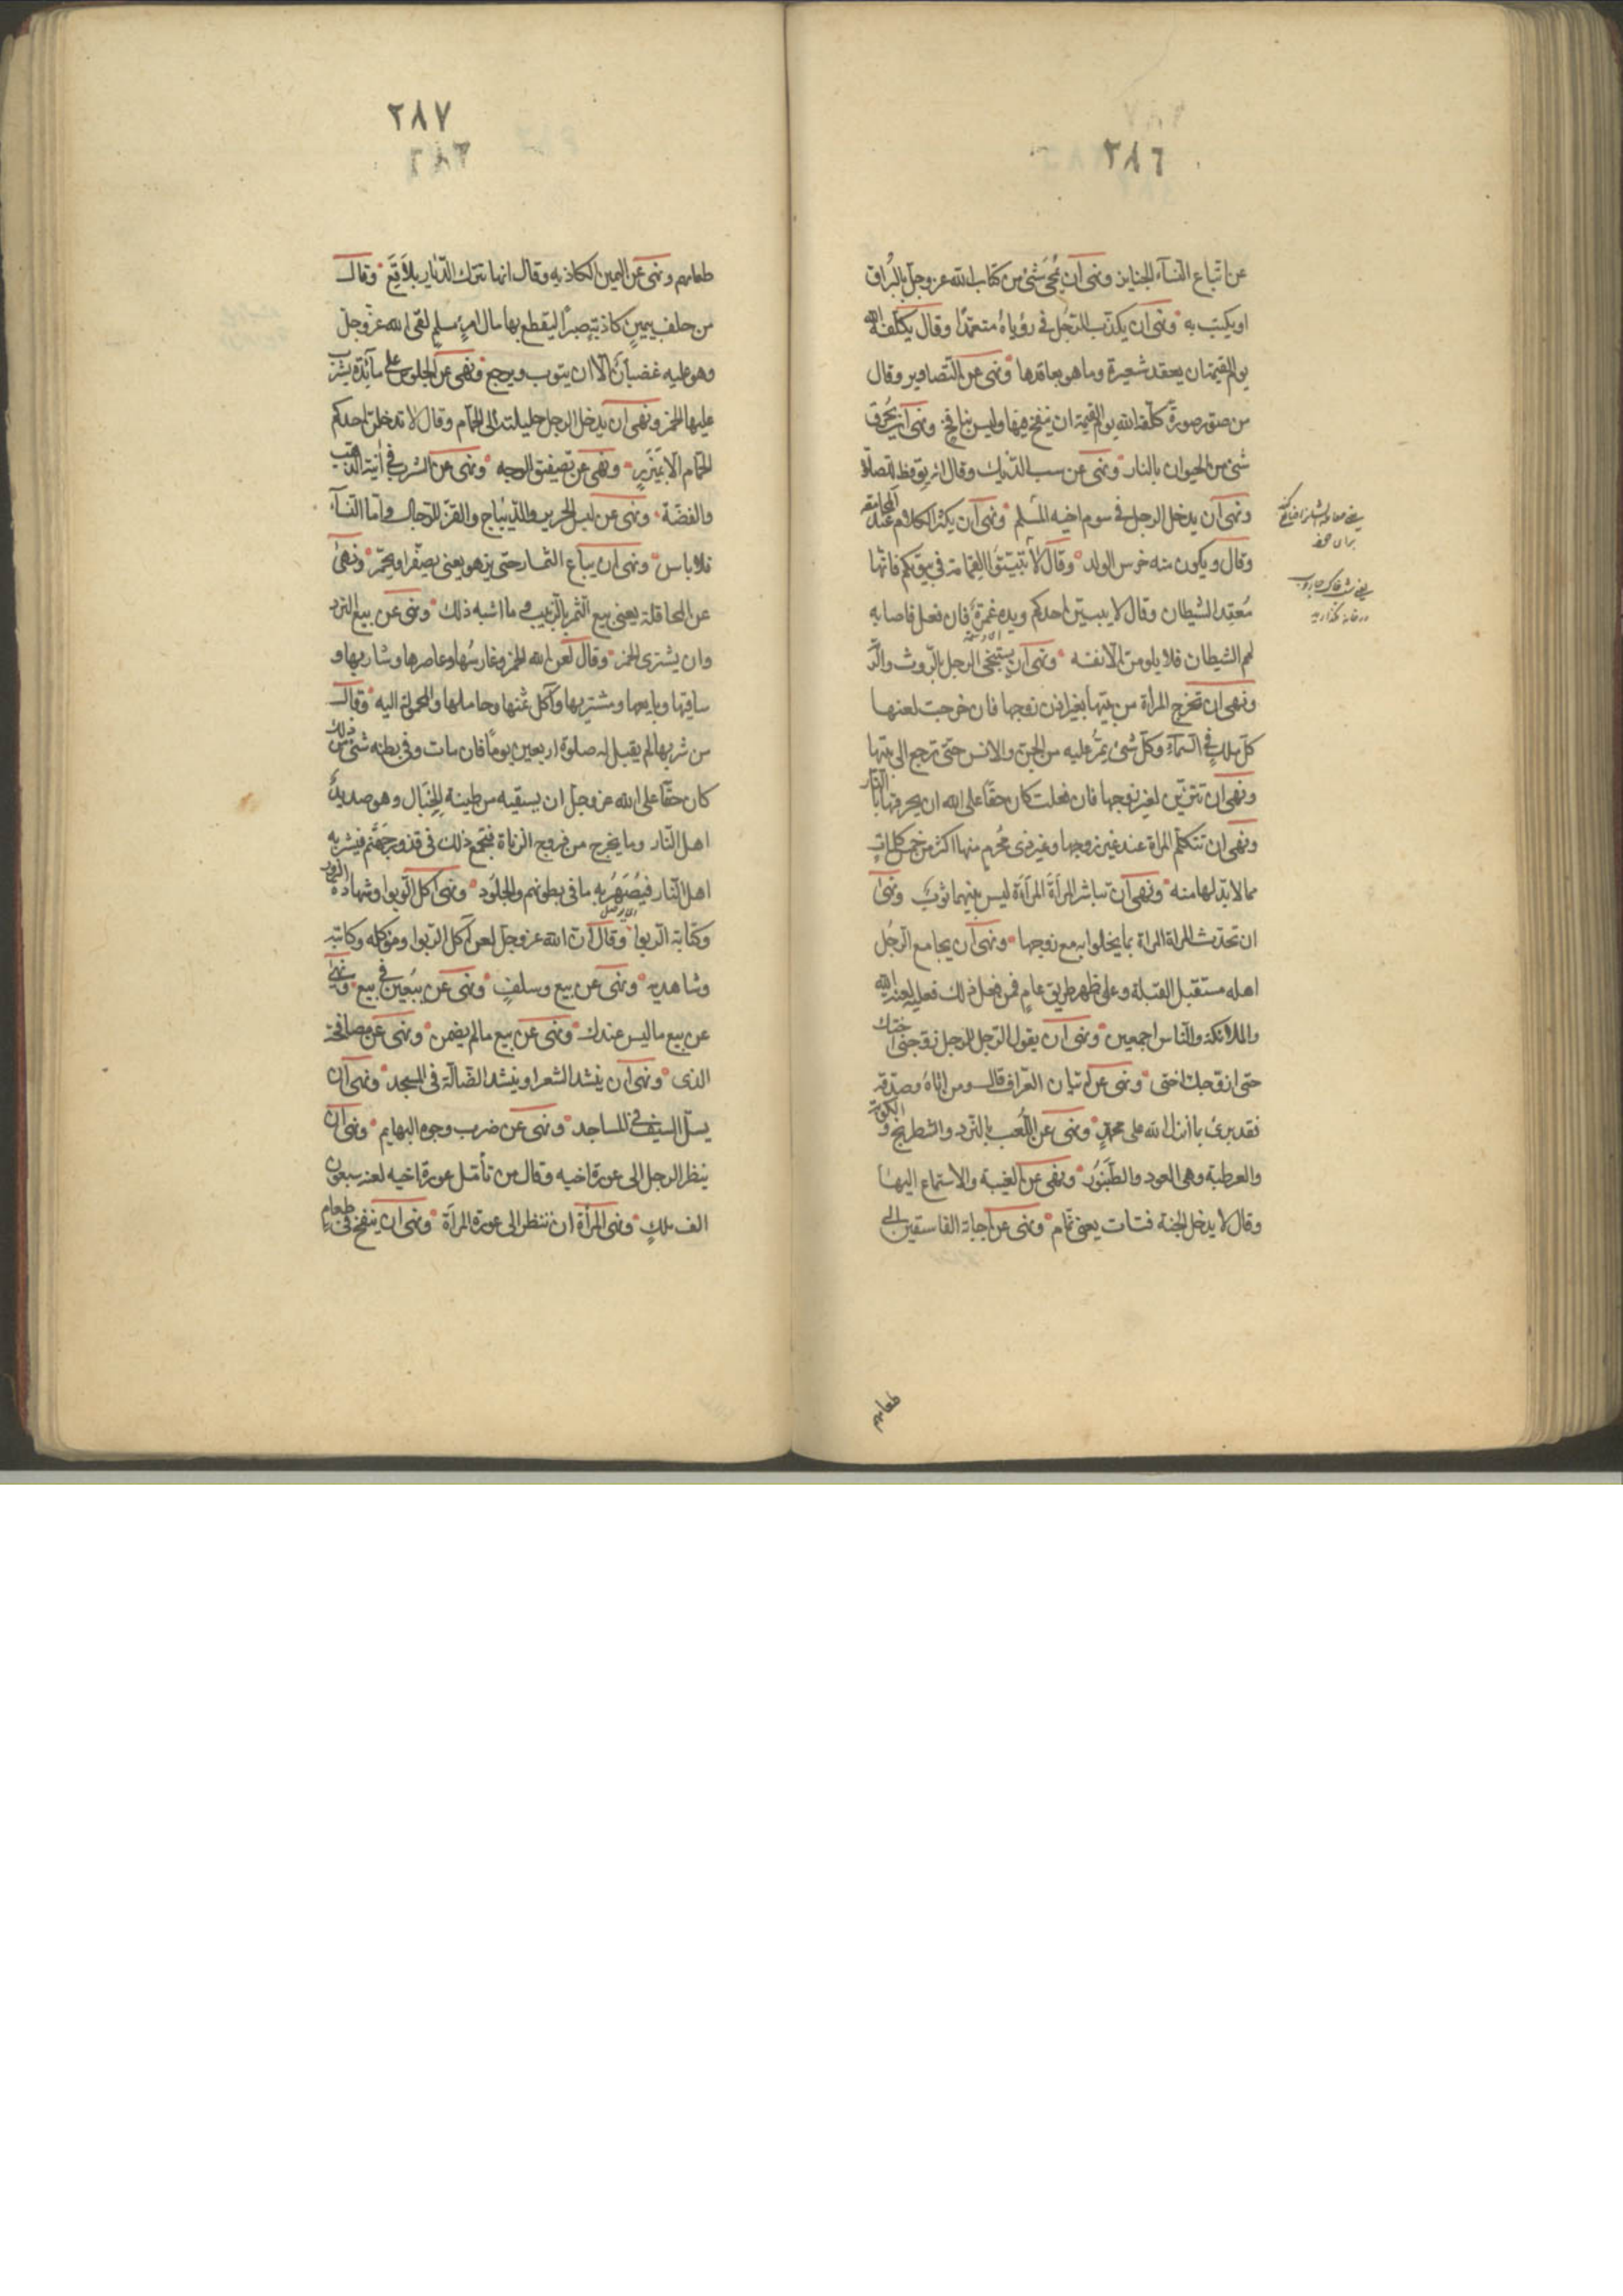 ٢٨٦
عن اتباع النسآء الجنايز ونهى ان يمحى شئ من كتاب الله عز وجل بالبزاق
او يكتب به ونهى ان يكذب الرجل فى رؤياه متعمدا وقال يكلفه الله
يوم القيمة ان يعقد شعيرة وما هو بعاقدها ونهى عن التصاوير وقال
من صور صورة كلفه الله يوم القيمة ان ينفخ فيها وليس بنافخ ونهى ان يحرق
شئ من الحيوان بالنار ونهى عن سب الديك وقال انه يوقظ للصلاة
ونهى ان يدخل الرجل فى سوم اخيه المسلم ونهى ان يكثر الكلام عند المجامعة
وقال ويكون منه خرس الولد وقال لا تبيتوا القمامة فى بيوتكم فانها
مقعد الشيطان وقال لا يبيتن احدكم ويده غمرة فان فعل فاصابه
لمم الشيطان فلا يلومن الا نفسه ونهى ان يستنجى الرجل بالروث والرمة
ونهى ان تخرج المراة من بيتها بغير اذن زوجها فان خرجت لعنها
كل ملك فى السمآء وكل شئ يمر عليه من الجن والانس حتى ترجع الى بيتها
ونهى ان تتزين لغير زوجها فان فعلت كان حقا على الله ان يحرقها بالنار
ونهى ان تتكلم المراة عند غير زوجها وغير ذى محرم منها اكثر من خمس كلمات
مما لا بد لها منه ونهى ان تباشر المرأة المرأة ليس بينهما ثوب ونهى
ان تحدث المراة المراة بما يخلوا به مع زوجها ونهى ان يجامع الرجل
اهله مستقبل القبلة وعلى ظهر طريق عام فمن فعل ذلك فعليه لعنة الله
والملائكة والناس اجمعين ونهى ان يقول الرجل للرجل زوجنى اختك
حتى ازوجك اختى ونهى عن اتيان العراف قال ومن اتاه وصدقه
فقد برئ بما انزل الله على محمد ونهى عن اللعب بالنرد والشطرنج والكوبة
والعرطبة وهى العود والطنبور ونهى عن الغيبة والاستماع اليها
وقال لا يدخل الجنة فتات يعنى نمام ونهى عن اجابة الفاسقين الى
طعامهم
٢٨٧
طعامهم ونهى عن اليمين الكاذبه وقال انها تترك الديار بلاقع وقال
من حلف بيمين كاذبة صبرا ليقطع بها مال امرئ مسلم لقى الله عز وجل
وهو عليه غضبان الا ان يتوب ويرجع ونهى عن الجلوس على مآئدة يشرب
عليها الخمر ونهى ان يدخل الرجل حليلته الى الحمام وقال لا تدخلن احدكم
الحمام الا بمئزر ونهى عن تصفيق الوجه ونهى عن الشرب فى آنية الذهب
والفضة ونهى عن لبس الحرير والديباج والقز للرجال واما النسآء
فلا باس ونهى ان يباع الثمار حتى يزهو يعنى يصفر او يحمر ونهى
عن المحاقلة يعنى بيع التمر بالزبيب وما اشبه ذلك ونهى عن بيع النرد
وان يشترى الخمر وقال لعن الله الخمر وغارسها وعاصرها وشاربها و
ساقيها وبايعها ومشتريها وآكل ثمنها وحاملها والمحمولة اليه وقال
من شربها لم يقبل له صلوة اربعين يوما فان مات وفى بطنه شئ من ذلك
كان حقا على الله عز وجل ان يسقيه من طينة الخبال وهو صديد
اهل النار وما يخرج من فروج الزناة فيجتمع ذلك فى قدور جهنم فيشربه
اهل النار فيصهر به ما فى بطونهم والجلود ونهى اكل الربوا وشهادة الزور
وكتابة الربوا وقال ان الله عز وجل لعن آكل الربوا وموكله وكاتبه
وشاهديه ونهى عن بيع وسلف ونهى عن بيعين فى بيع ونهى
عن بيع ما ليس عندك ونهى عن بيع مالم يضمن ونهى عن مصافحة
الذى ونهى ان ينشد الشعر او ينشد الضالة فى المسجد ونهى ان
يسل السيف فى المساجد ونهى عن ضرب وجوه البهايم ونهى ان
ينظر الرجل الى عورة اخيه وقال من تأمل عورة اخيه لعنه سبعون
الف ملك ونهى المرأة ان تنظر الى عورة المرأة ونهى ان ينفخ فى طعام